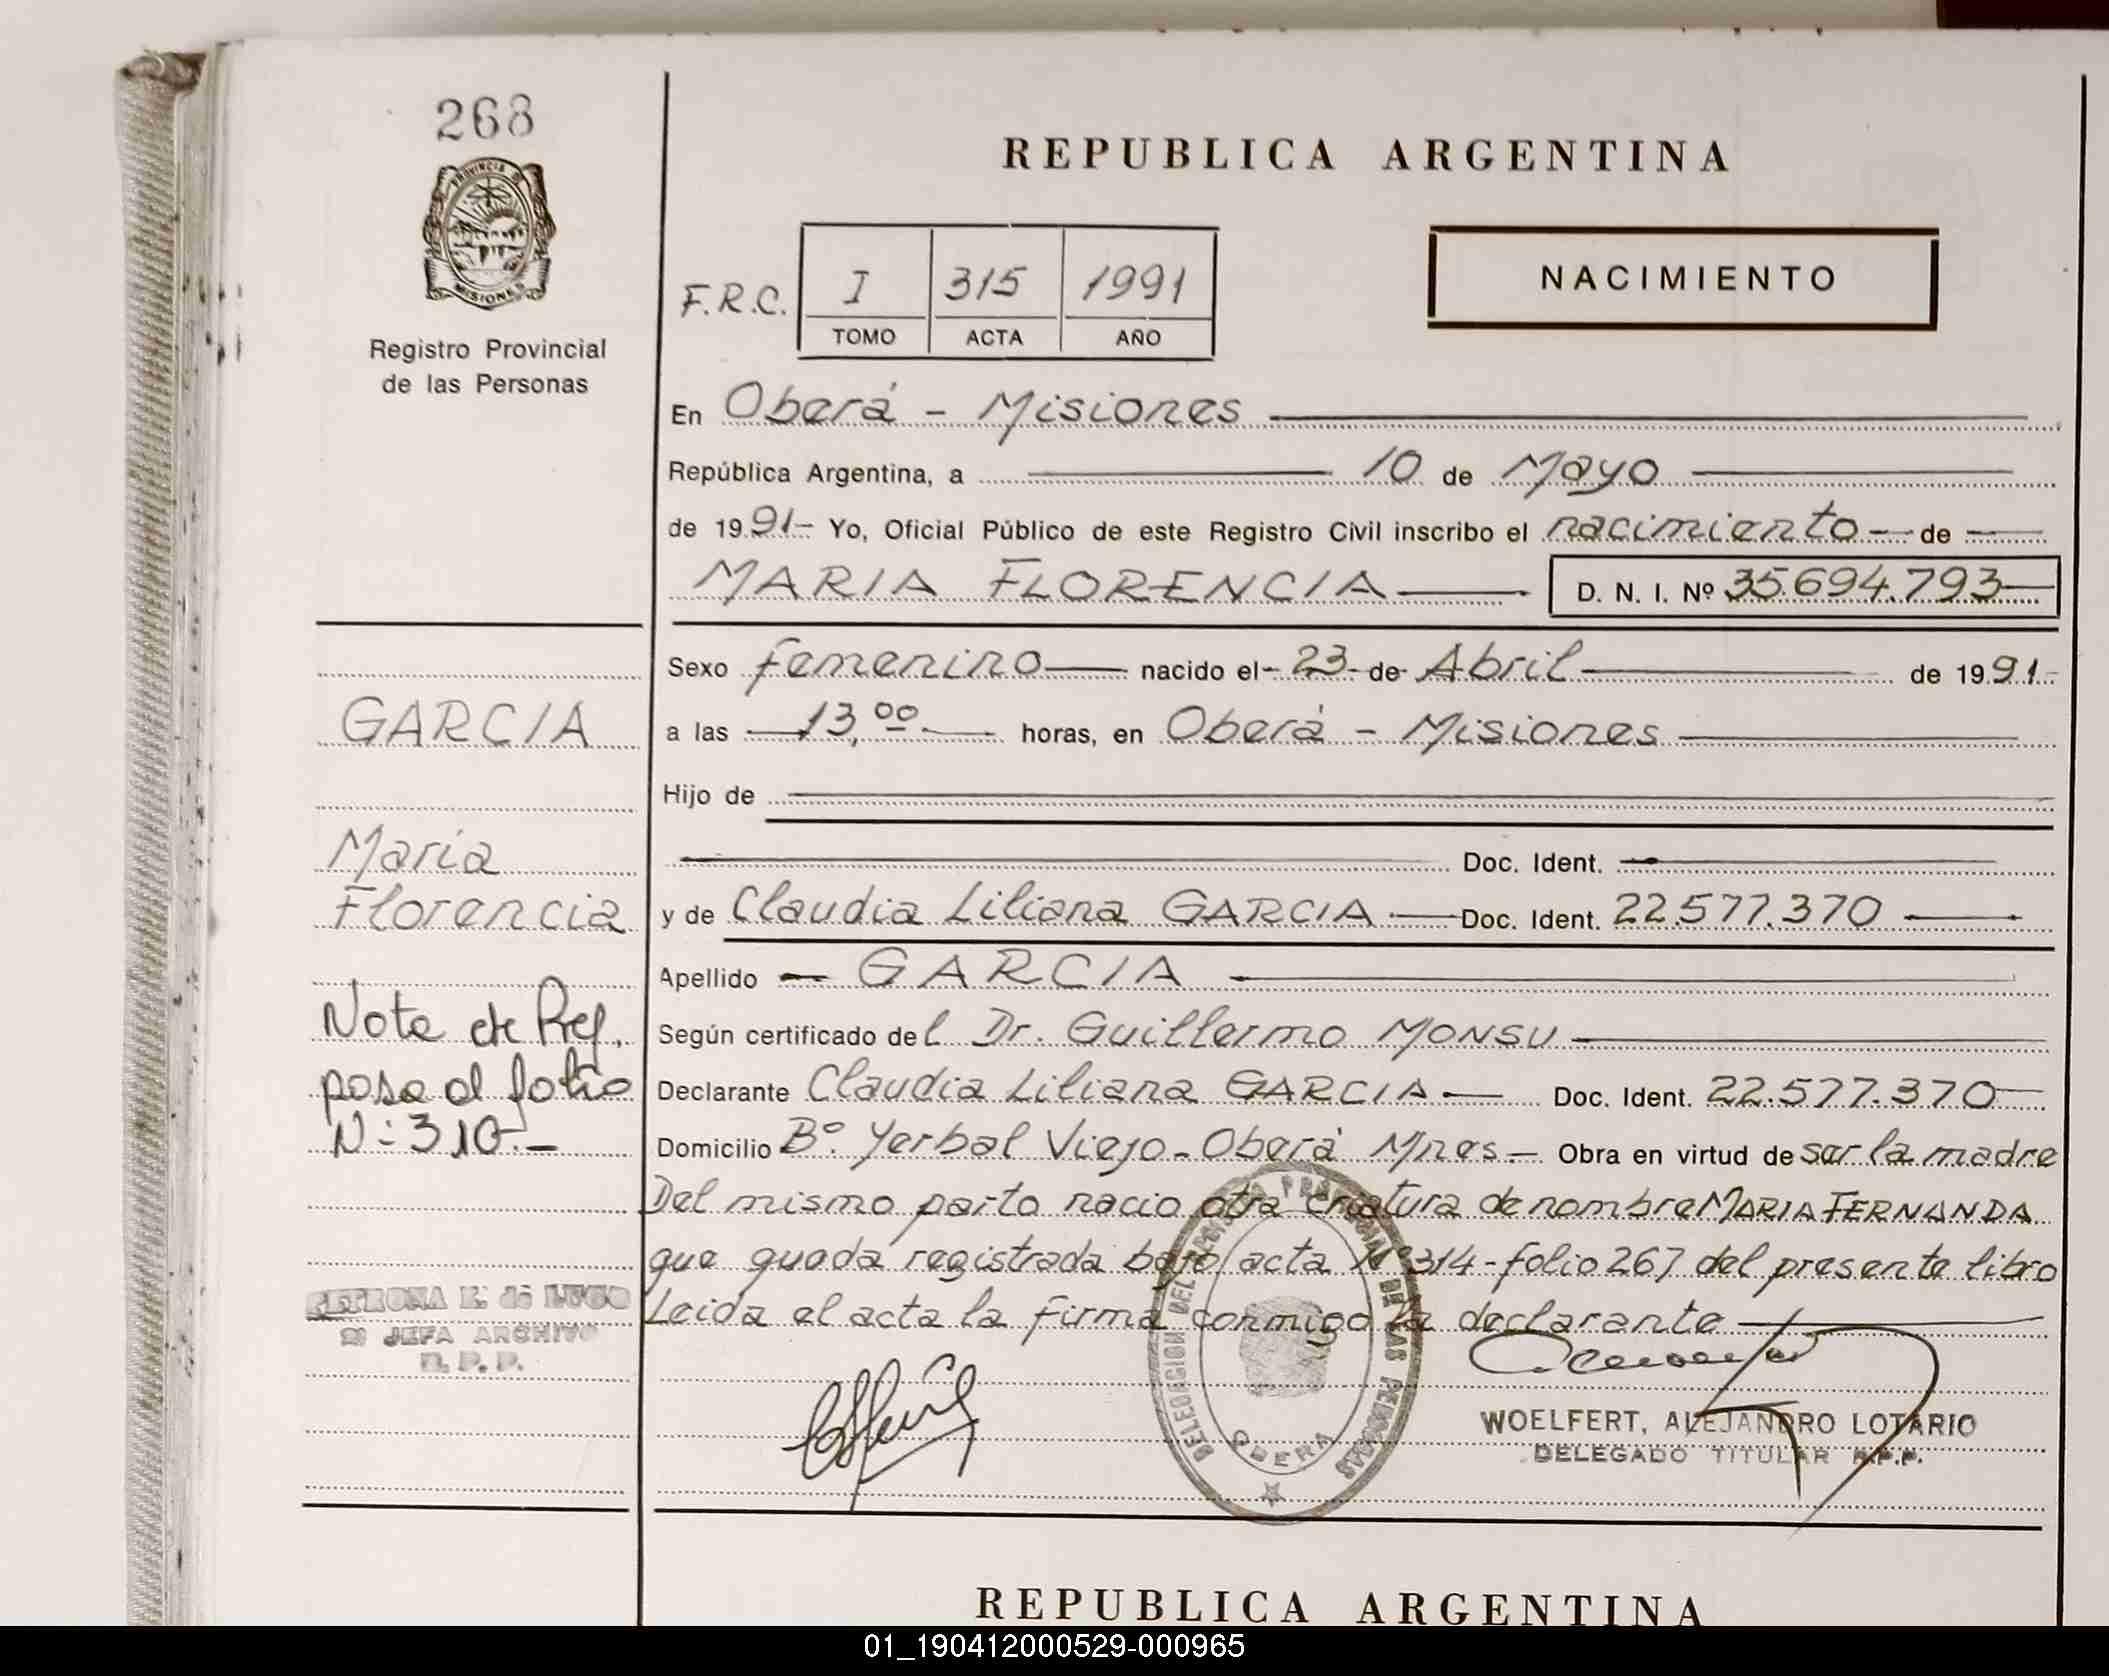 268
PROVINCIA DE
MISIONES
Registro Provincial
de las Personas
REPUBLICA ARGENTINA
F.R.C.
I 315 1991
TOMO ACTA AÑO
NACIMIENTO
En Oberá - Misiones
República Argentina, a 10 de Mayo
de 1991- Yo, Oficial Público de este Registro Civil inscribo el nacimiento - de
MARIA FLORENCIA D. N. I. Nº 35.694.793
Sexo femenino nacido el 23 de Abril de 1991
a las 13,00 horas, en Oberá - Misiones
Hijo de
Doc. Ident.
y de Claudia Liliana GARCIA Doc. Ident. 22.577.370
Apellido GARCIA
Según certificado del Dr. Guillermo MONSU
Declarante Claudia Liliana GARCIA Doc. Ident. 22.577.370
Domicilio Bº. Yerbal Viejo - Oberá Mnes - Obra en virtud de ser la madre
Del mismo parto nacio otra criatura de nombre MARIA FERNANDA
que queda registrada bajo acta Nº 314 - folio 267 del presente libro
Leida el acta la firma conmigo la declarante
GARCIA
Maria
Florencia
Nota de Ref.
pasa al folio
Nº 310.-
PETRONA de LUGO
JEFA ARCHIVO
R. P. P.
DELEGACION DEL REGISTRO PROVINCIAL DE LAS PERSONAS
OBERA
WOELFERT, ALEJANDRO LOTARIO
DELEGADO TITULAR R.P.P.
REPUBLICA ARGENTINA
01_190412000529-000965